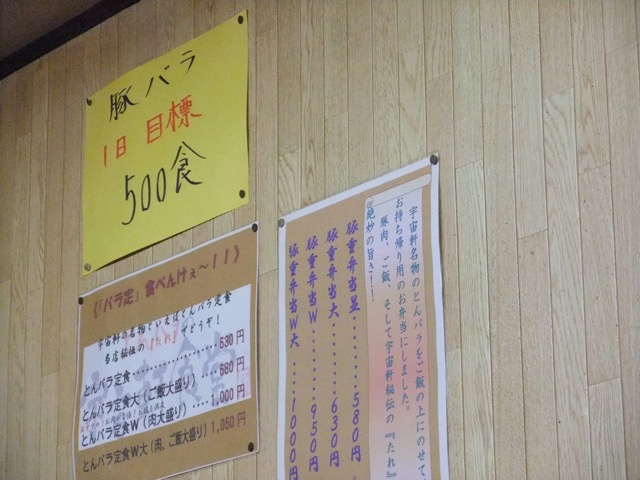 豚バラ
1日 目標
500食
(「バラ定」食べんけぇ～!!)
宇宙軒の名物といえばとんバラ定食
当店秘伝の『たれ』でどうぞ!
とんバラ定食・・・・・・・・・・・・・・・・・630円
とんバラ定食大(ご飯大盛り)・・・・680円
とんバラ定食W(肉大盛り)・・・・1,000円
とんバラ定食W大(肉、ご飯大盛り)1,050円
宇宙軒名物のとんバラをご飯の上にのせて、
お持ち帰り用のお弁当にしました。
豚肉、ご飯、そして宇宙軒秘伝の『たれ』
絶妙の旨さ!!
豚重弁当並・・・・・・・580円
豚重弁当大・・・・・・・630円
豚重弁当W・・・・・・・950円
豚重弁当W大・・・・1000円